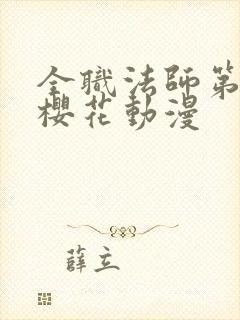 全職法師第
櫻花動漫
薛立